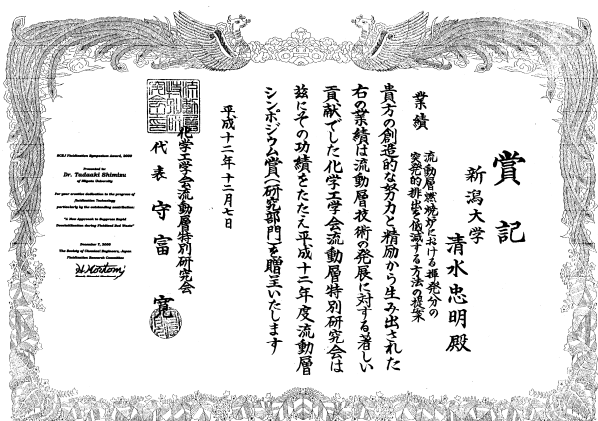 賞記
新潟大学
清水忠明殿
業績
流動層燃焼炉における揮発分の
突発的排出を低減する方法の提案
貴方の創造的な努力と精励から生み出された
右の業績は流動層技術の発展に対する著しい
貢献でした化学工学会流動層特別研究会は
茲にその功績をたたえ平成十二年度流動層
シンポジウム賞(研究部門)を贈呈いたします
平成十二年十二月七日
化学工学会流動層特別研究会
代表 守富 寛
SCEJ Fluidization Symposium Award, 2000
Presented to
Dr. Tadaaki Shimizu
of Niigata University
For your creative dedication to the progress of
fluidization technology
particularly by the outstanding contribution:
"A New Approach to Suppress Rapid
Devolatilization during Fluidized Bed
December 7, 2000
The Society of Chemical Engineers, Japan
Fluidization Research Committee